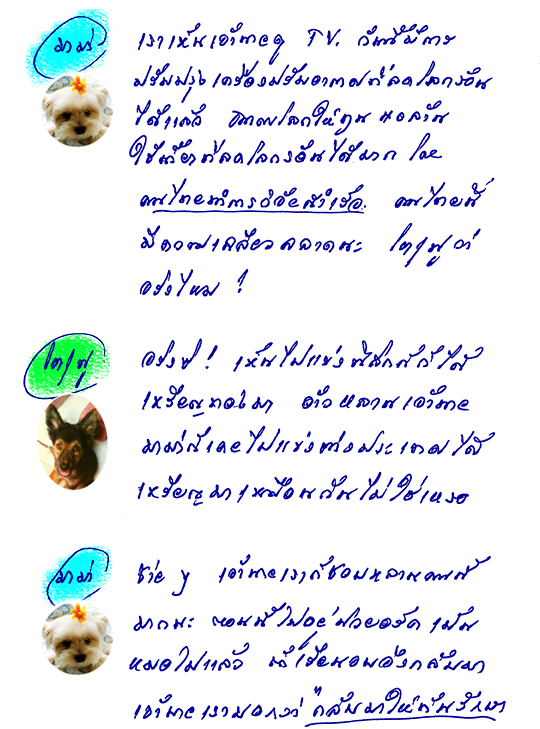 มาม่า
เราเห็นเจ้านายดู TV. วันนี้มีการ
ปรับปรุงเครื่องปรับอากาศที่ลดโลกร้อน
ได้แล้ว
ใช้ ที่ลดโลกร้อนได้มาก โดย
คนไทยทำการวิจัยสำเร็จ. คนไทยนี้
มีความเฉลียวฉลาดนะ โตฟู ว่า
จริงไหม !
โตฟู
จริงซิ ! เห็นไปแข่ง ก็ได้
เหรียญทองมา หลานเจ้านาย
มาม่าก็เคยไปแข่งต่างประเทศได้
เหรียญมาเหมือนกันไม่ใช่เหรอ
มาม่า
ช่าย ๆ เจ้านายเราก็ชอบหลานคนนี้
มากนะ ตอนนี้ไปอยู่นิวยอร์ค เป็น
หมอไปแล้ว นี่เรียนจบก็กลับมา
เจ้านายเราบอกว่า "กลับมาให้ทันรักษา